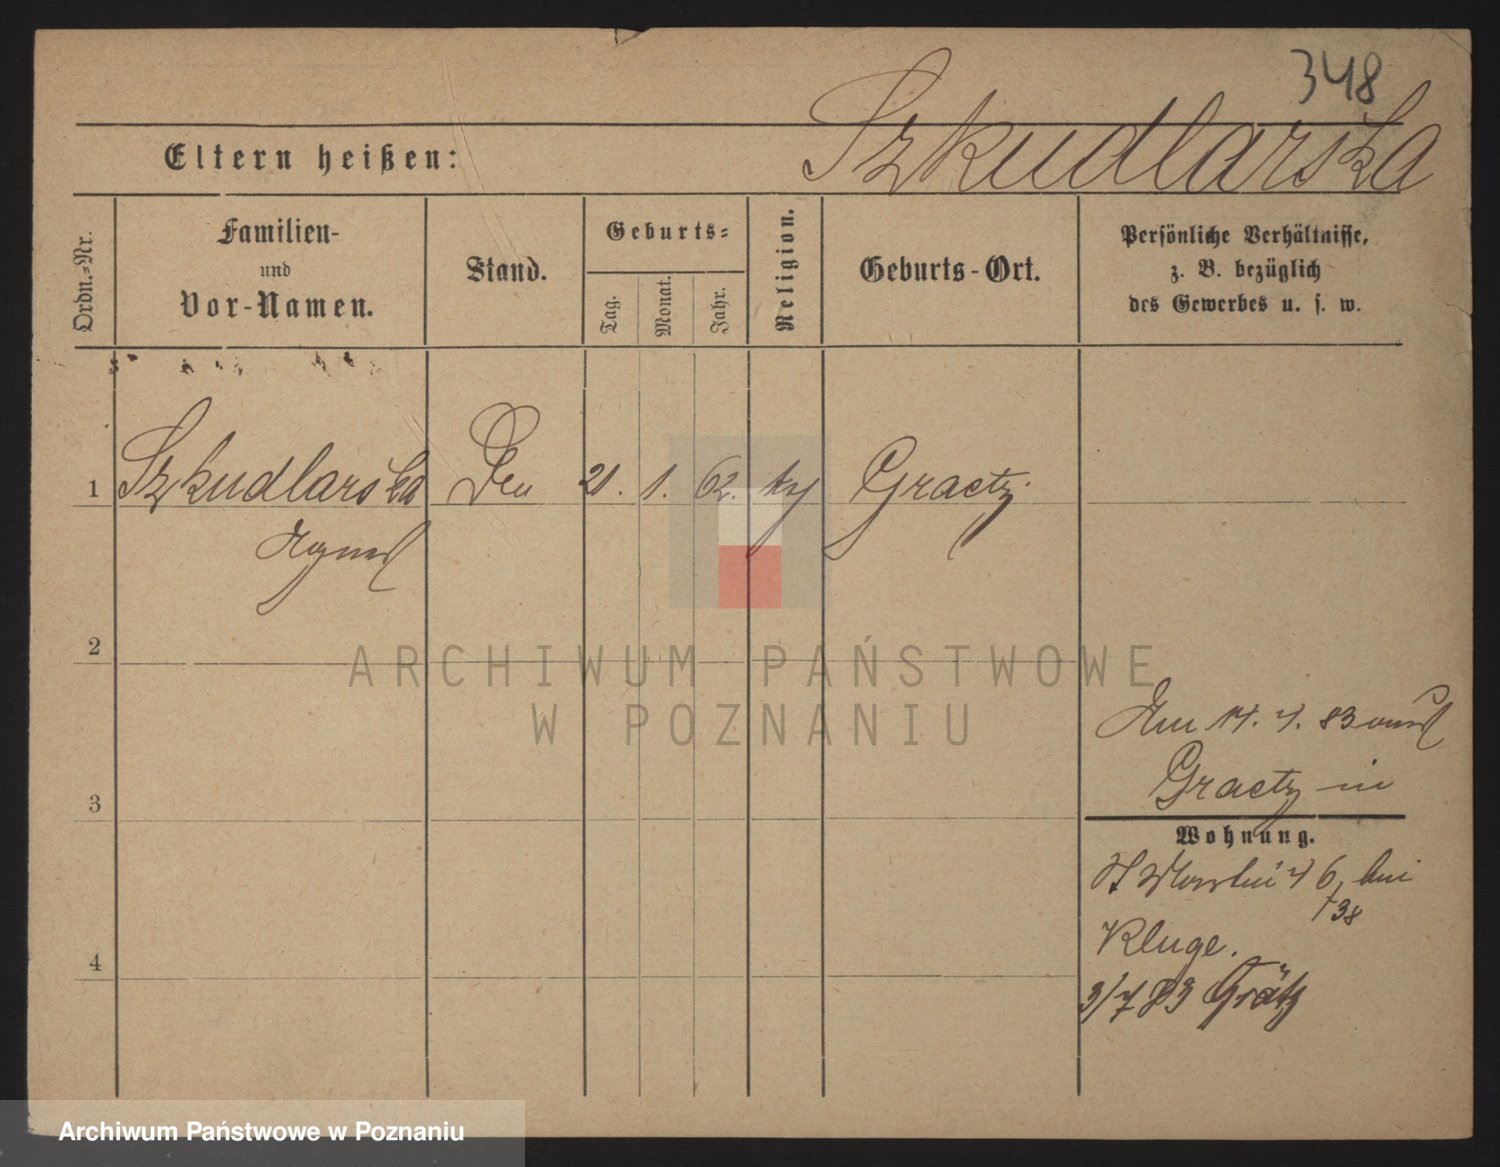 348
Szkudlarska
Eltern heißen:
Ordn.=Nr.
Familien-
und
Vor-Namen.
Stand.
Geburts=
Tag.
Monat.
Jahr.
Religion.
Geburts-Ort.
Persönliche Verhältnisse,
z. B. bezüglich
des Gewerbes u. s. w.
1 Szkudlarska 21. 1. 62. Graetz
Agnes
2
ARCHIWUM PAŃSTWOWE
W POZNANIU
3
4
83
Graetz in
Wohnung.
6, bei
38
Kluge.
3/7 83 Grätz
Archiwum Państwowe w Poznaniu